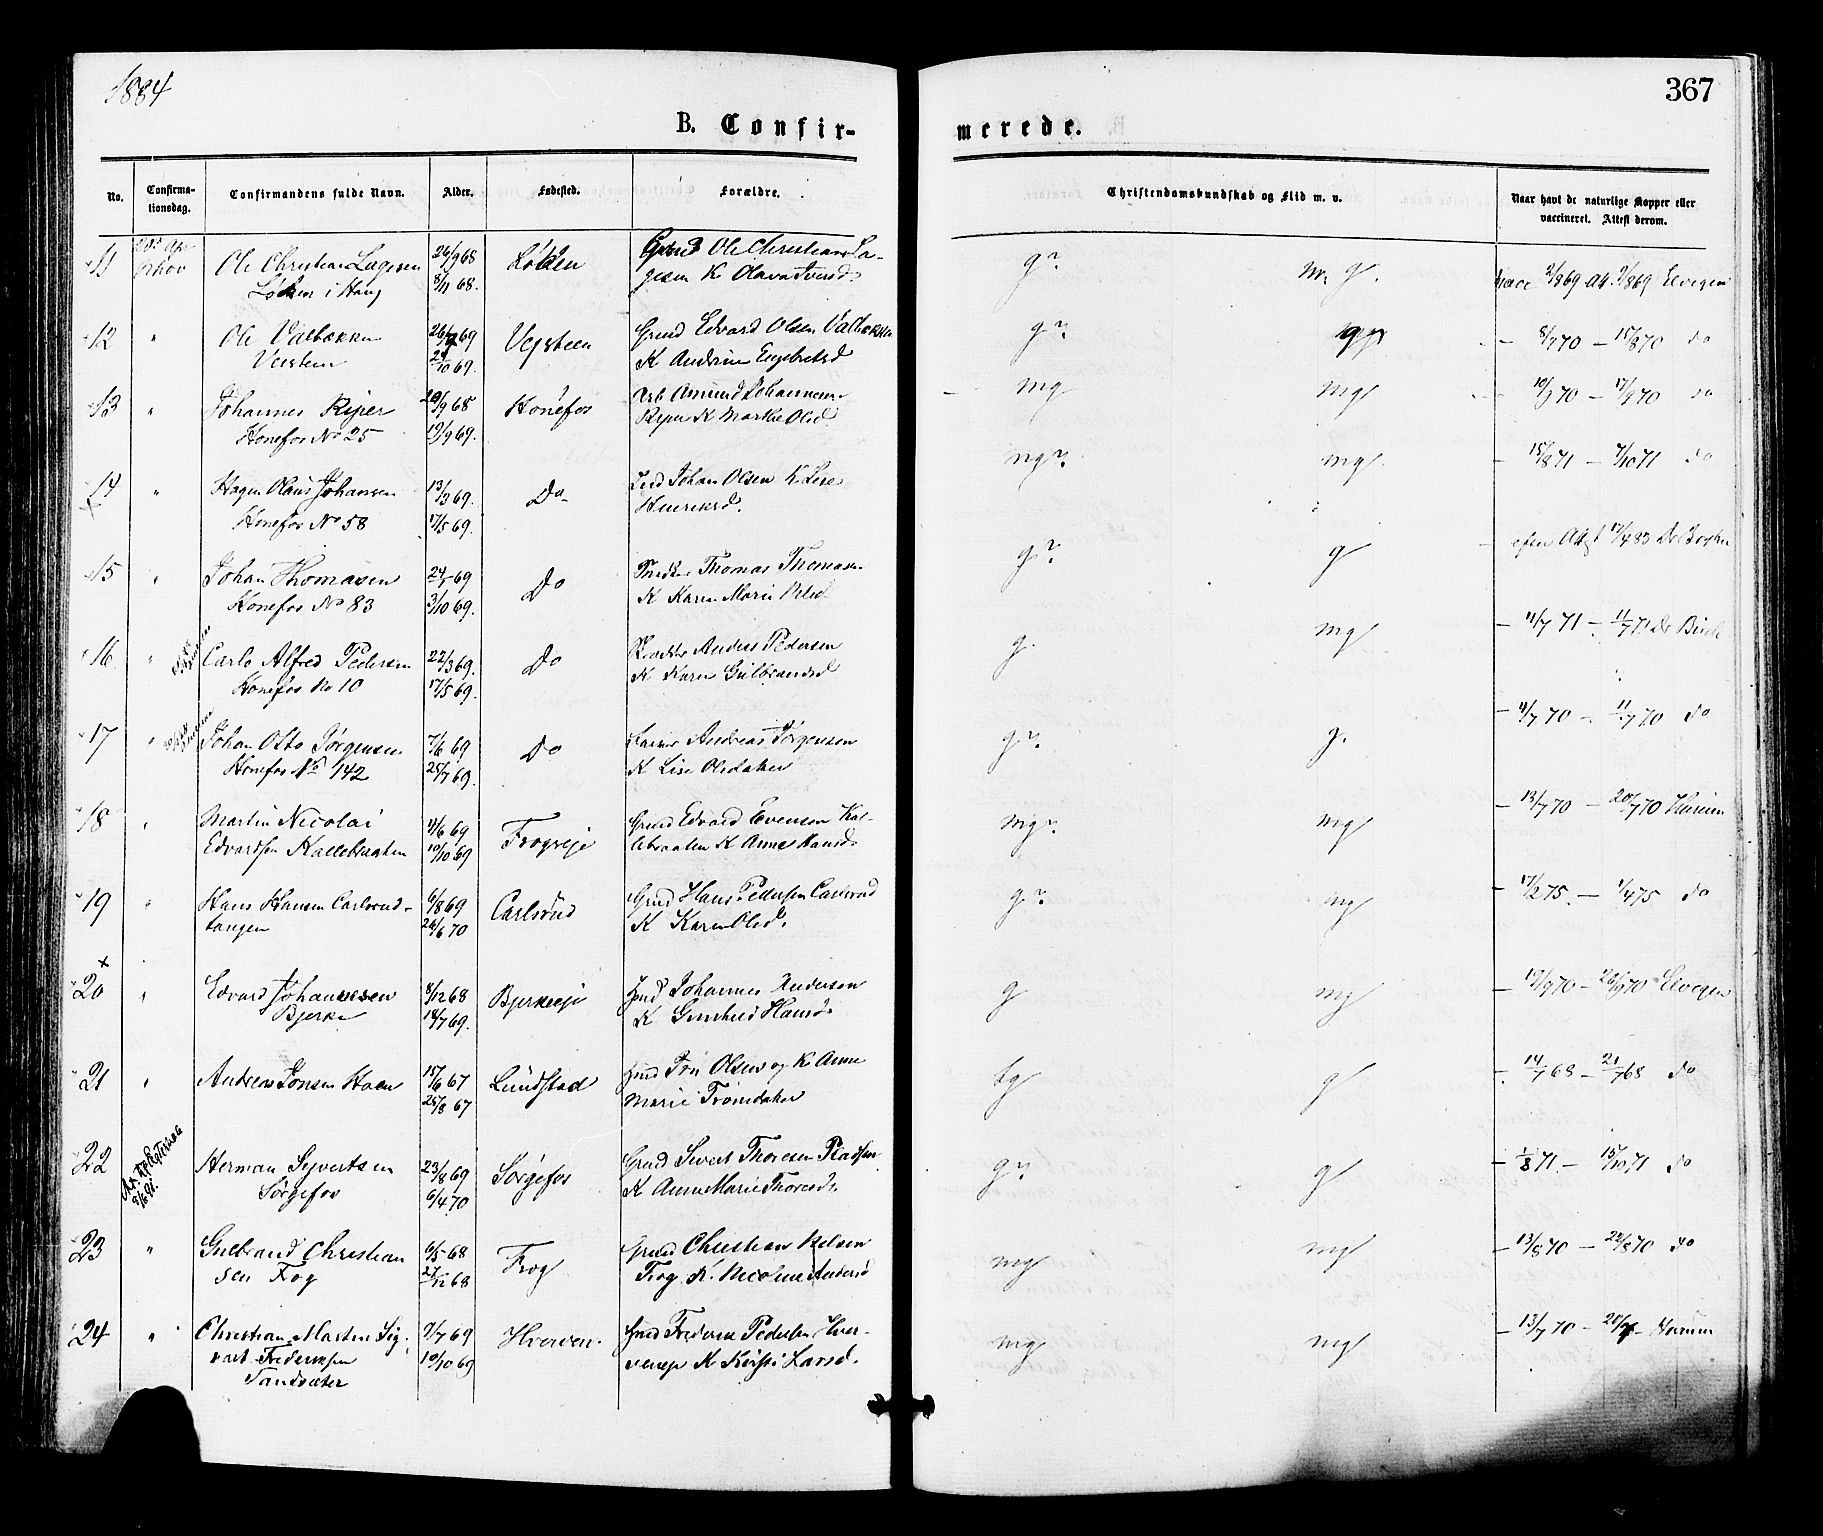 1884
367
B. Confir-
merede.
No.
Confirma-
tionsdag.
Confirmandens fulde Navn.
Alder.
Fødested.
Forældre.
Christendomskundskab og Flid m. v.
Naar havt de naturlige Kopper eller
vaccineret. Attest derom.
11
Ole Christian Lagesen
Løken i Haug
26/9 68
8/11 68.
Løken
Ole Christian La-
gesen K
g?
m. g.
vacc 2/8 69 att 9/8 69 Elvegen
12 "
Ole Valbækken
Veisteen
26/7 69
24/10 69.
Vejsteen
Grmd Edvard Olsen Valbækken
K Andrine Engebretsd
g?
8/7 70 – 15/8 70 do
13 "
Johannes Riper
Hønefos No 25
19/9 69.
Hønefos
Arb Amund Johannesen
Riper K Marthe Olsd
mg
mg
10/9 70 – 17/9 70 do
14 "
Hagen Olaus Johansen
Hønefos No 58
13/3 69.
17/5 69.
Do
Johan Olsen K Lise
Henriksd.
mg?
mg
– 15/8 71 – 7/10 71 do
15 "
Johan Thomasen
Hønefos No 83
24/1 69
3/10 69.
Do
Snedker Thomas Thomasen
K Karen Marie Olsd
g?
g
efter Attest 17/4 83 Dr
16 "
Carl Alfred Pedersen
Hønefos No 10
22/3 69.
17/5 69.
Do
Anders Pedersen
K Karen Gulbrandsd
g.
mg
– 4/7 71 – 11/7 71 Dr
17 "
Johan Otto Jørgensen
Hønefos No 142
7/6 69
25/7 69.
Do
Andreas Jørgensen
K Lise Olsdatter
g?
g.
– 4/7 70 – 11/7 70 do
18 "
Martin Nicolai
Edvardsen Kallebraaten
4/6 69
10/10 69
Frogseje
Grmd Edvard Evensen Kal-
lebraaten K Anne Hansd
mg?
mg
– 13/7 70 – 20/7 70
19 "
Hans Hansen Carlsrud-
tangen
6/8 69
26/6 70
Carlsrud
Grmd Hans Pedersen Carlsrud
K Karen Olsd.
g?
mg
– 17/2 75. – 1/4 75 do
20 "
Edvard Johannesen
Bjerke
8/12 68
18/7 69.
Bjerkeeje
Hmd Johannes Andersen
K Gunhild Hansd.
g
mg
– 19/9 70 – 26/9 70 Elvegen
21 "
Andreas Jonsen Hoen
15/6 67
25/8 67
Lundstad
Hmd Jon Olsen og K Anne
Marie Jonsdatter
tg
g
– 14/7 68 – 21/7 68 do
22
Herman Syvertsen
Sørgefos
23/8 69
6/4 70
Sørgefos
Grmd Sivert Thoresen
K Anne Marie Thoresd.
g?
g
– 1/8 71. – 15/10 71 do
23 "
Gulbrand Christian
sen Frog
6/5 68
27/12 68
Frog
Grmd Christian Nelsen
Frog K. Nicoline Andersd
mg
mg
– 13/8 70 – 22/8 70 do
24 "
Christian Martin Sig-
vart Frederiksen
Tandsæter
9/7 69
10/10 69
Hverven.
Hmd Frederik Pedersen Hver-
venseje K Kirsti Larsd.
mg
mg
– 13/7 70 –